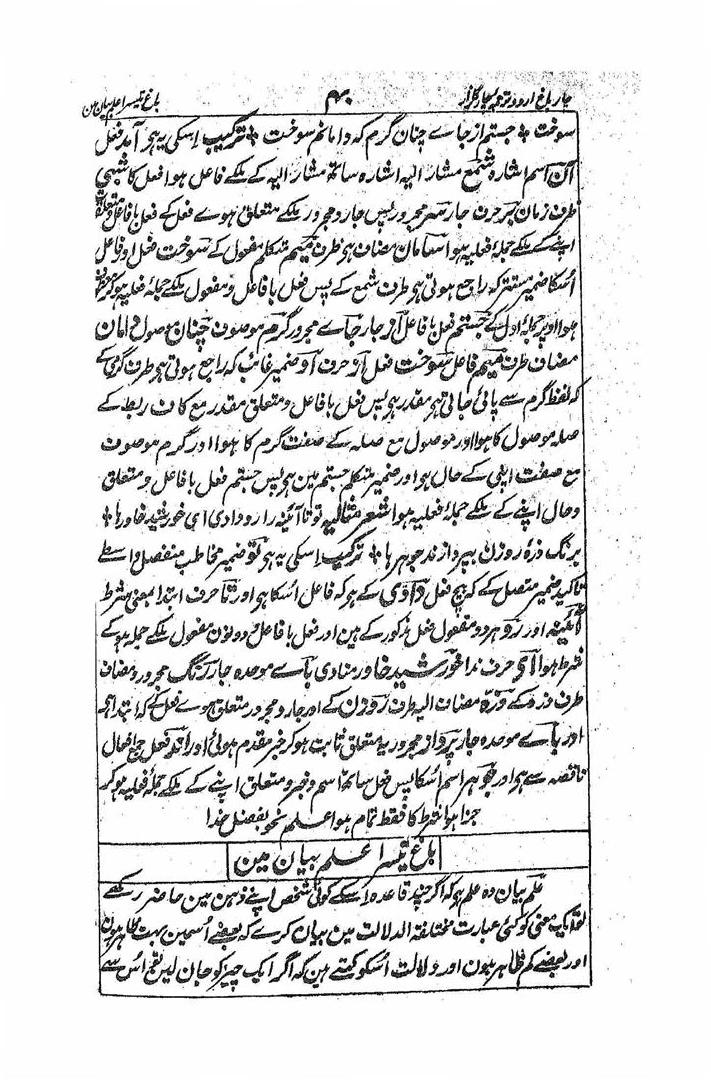 چار باغ اردو ترجمہ چار گلزار
۴۰
باغ تیسرا علم بیان مین
سوخت ٭ جستم از جاے چنان گرم کہ دامانم سوخت ٭ ترکیب اسکی یہ ہی آمد فعل
آن اسم اشارہ شمع مشار الیہ اشارہ ساتھ مشار الیہ کے ملکے فاعل ہوا فعل کا شبی
ظرف زمان بسر حرف جار سر مجرور پس جار و مجرور ملکے متعلق ہوے فعل کے فعل با فاعل و متعلق
اپنے کے ملکے جملہ فعلیہ ہوا سامان مضاف ہی طرف میم متکلم مفعول کے سوخت فعل او فاعل
اسکا ضمیر مستتر کہ راجع ہوتی ہی طرف شمع کے پس فعل با فاعل و مفعول ملکے جملہ فعلیہ ہوکر معطوف
ہوا اوپر جملہ اول کے جستم فعل با فاعل از جار جاے مجرور گرم موصوف چنان موصول دامان
مضاف طرف میم فاعل سوخت فعل از حرف او ضمیر غائب کہ راجع ہوتی ہی طرف گرمی کے
کہ لفظ گرم سے پائی جاتی ہی مقدر ہی پس فعل با فاعل و متعلق مقدر مع کاف ربط کے
صلہ موصول کا ہوا اور موصول مع صلہ کے صفت گرم کا ہوا اور گرم موصوف
مع صفت اپنی کے حال ہوا ور ضمیر متکلم جستم مین ہی پس جستم فعل با فاعل و متعلق
و حال اپنے کے ملکے جملہ فعلیہ ہوا شعر مثالیہ تو تا آئینہ را رو دادی ای خورشید خاورہا ٭
برنگ ذرہ روزن بپرواز ند جوہرہا ٭ ترکیب اسکی یہ ہی تو ضمیر مخاطب منفصل واسطے
تاکید ضمیر متصل کے کہ بیچ فعل دادی کے ہی کہ فاعل اسکا ہی اور تا حرف ابتدا بمعنی شرط
آئینہ اور رو ہر دو مفعول فعل مذکور کے ہین اور فعل با فاعل و دونون مفعول ملکے جملہ ہوکے
شرط ہوا ای حرف ندا خورشید خاور منادی باے موحدہ جار رنگ مجرور و مضاف
طرف ذرہ کے ذرہ مضاف الیہ طرف روزن کے اور جار و مجرور متعلق ہوے فعل کے کہ اند ہی
اور باے موحدہ جار پرواز مجرور یہ متعلق ثابت ہوکر خبر مقدم ہوئی اور اند فعل جمع افعال
ناقصہ سے ہی اور جوہر اسم اسکا پس فعل ساتھ اسم و خبر و متعلق اپنے کے ملکے جملہ فعلیہ ہوکر
جزا ہوا شرط کا فقط تمام ہوا علم نحو بفضل خدا
باغ تیسرا علم بیان مین
علم بیان وہ علم ہی کہ اگر چند قاعدہ اسکے کوئی شخص اپنے ذہن مین حاضر رکھے
تو ایک معنی کو کئی عبارت مختلفۃ الدلالت مین بیان کرے کہ بعضے اسمین بہت ظاہر ہون
اور بعضے کم ظاہر ہون اور دلالت اسکو کہتے ہین کہ اگر ایک چیز کو جان لین تو اس سے